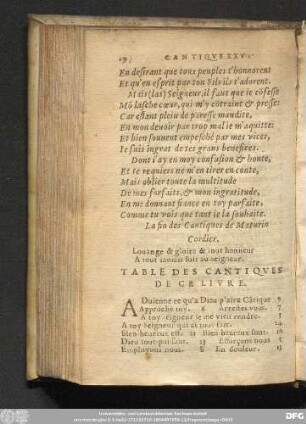 CANTIQVE XXV.
En desirant que tous peuples t'honnorent
Et qu'en esprit par ton Fils ils t'adorent.
Mais (las) Seigneur, il faut que ie cõfesse
Mõ lasche cœur, qui m'y cõtraint & presse:
Car estant plein de paresse maudite,
En mon deuoir par trop mal ie m'aquitte:
Et bien souuent empesché par mes vices,
Ie suis ingrat de tes grans benefices.
Dont i'ay en moy confusion & honte,
Et te requiers ne m'en tirer en conte,
Mais oblier toute la multitude
De mes forfaits, & mon ingratitude,
En me donnant fiance en toy parfaite,
Comme tu vois que tant ie la souhaite.
La fin des Cantiques de Maturin
Cordier.
Louange & gloire & tout honneur
A tout iamais soit au Seigneur.
TABLE DES CANTIQVES
DE CE LIVRE.
ADuienne ce qu'à Dieu plaira Cãtique 9
Approche toy. 8 Arrestez vous. 7
A toy Seigneur ie me viẽ rendre.
A toy Seigneur qui as tout fait. 24
Bien-heureux est. 11 Bien heureux sont.
Dieu tout puissant. 13 Efforçons nous 5
Employons nous. 8 En douleur. 15